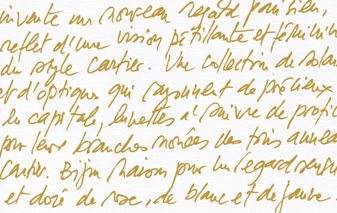 invente un nouveau regard parisien,
reflet d'une vision pétillante et féminine
du style Cartier. Une collection de solaires
et d'optiques qui rayonnent de précieux
la capitale, lunettes à suivre de profil
pour leurs branches nouées des trois anneaux
Cartier. Bijou maison pour un regard
et doré de rose, de blanc et de jaune.